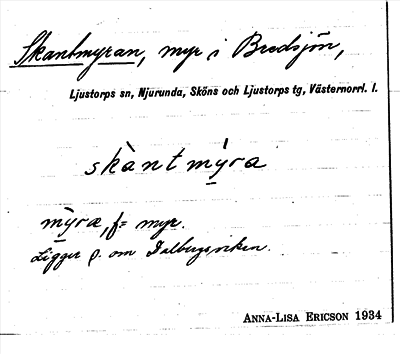 Skantmyran, myr i Bredsjön,
Ljustorps sn, Njurunda, Sköns och Ljustorps tg, Västernorrl. l.
skàntmỳra
mỳra, f = myr.
Ligger ö. om Dalbergsviken.
ANNA-LISA ERICSON 1934